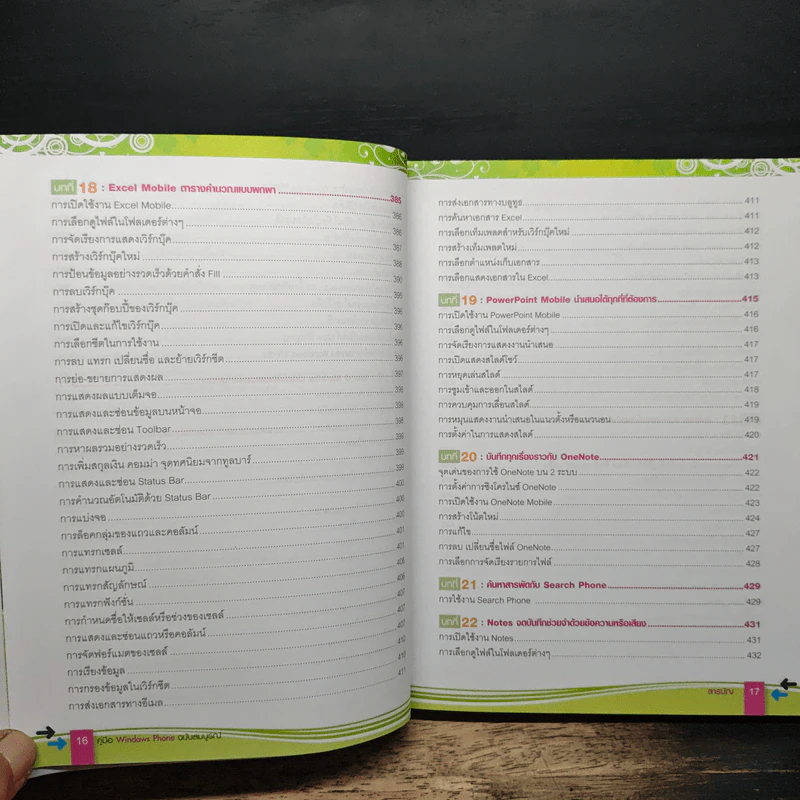 บทที่ 18 : Excel Mobile ตารางคำนวณแบบพกพา 385
การเปิดใช้งาน Excel Mobile 386
การเลือกดูไฟล์ในโฟลเดอร์ต่างๆ 386
การจัดเรียงการแสดงเวิร์กบุ๊ค 387
การสร้างเวิร์กบุ๊คใหม่ 387
การป้อนข้อมูลอย่างรวดเร็วด้วยคำสั่ง Fill 390
การลบเวิร์กบุ๊ค 395
การสร้างชุดก๊อบปี้ของเวิร์กบุ๊ค 395
การเปิดและแก้ไขเวิร์กบุ๊ค 396
การเลือกชีตในการใช้งาน 396
การลบ แทรก เปลี่ยนชื่อ และย้ายเวิร์กชีต 396
การย่อ-ขยายการแสดงผล 397
การแสดงผลแบบเต็มจอ 398
การแสดงและซ่อนข้อมูลบนหน้าจอ 398
การแสดงและซ่อน Toolbar 398
การหาผลรวมอย่างรวดเร็ว 399
การเพิ่มสกุลเงิน คอมม่า จุดทศนิยมจากทูลบาร์ 399
การแสดงและซ่อน Status Bar 400
การคำนวณอัตโนมัติด้วย Status Bar 400
การแบ่งจอ 400
การล็อคกลุ่มของแถวและคอลัมน์ 401
การแทรกเซลล์ 401
การแทรกแผนภูมิ 405
การแทรกสัญลักษณ์ 406
การแทรกฟังก์ชัน 407
การกำหนดชื่อให้เซลล์หรือช่วงของเซลล์ 407
การแสดงและซ่อนแถวหรือคอลัมน์ 407
การจัดฟอร์แมตของเซลล์ 410
การเรียงข้อมูล 410
การกรองข้อมูลในเวิร์กชีต 411
การส่งเอกสารทางอีเมล
16 คู่มือ Windows Phone ฉบับสมบูรณ์
การส่งเอกสารทางบลูทูธ 411
การค้นหาเอกสาร Excel 411
การเลือกเท็มเพลตสำหรับเวิร์กบุ๊คใหม่ 412
การสร้างเท็มเพลตใหม่ 412
การเลือกตำแหน่งเก็บเอกสาร 413
การเลือกแสดงเอกสารใน Excel 413
บทที่ 19 : PowerPoint Mobile นำเสนอได้ทุกที่ที่ต้องการ 415
การเปิดใช้งาน PowerPoint Mobile 416
การเลือกดูไฟล์ในโฟลเดอร์ต่างๆ 416
การจัดเรียงการแสดงงานนำเสนอ 417
การเปิดแสดงสไลด์โชว์ 417
การหยุดเล่นสไลด์ 417
การซูมเข้าและออกในสไลด์ 418
การควบคุมการเลื่อนสไลด์ 419
การหมุนแสดงงานนำเสนอในแนวตั้งหรือแนวนอน 419
การตั้งค่าในการแสดงสไลด์ 420
บทที่ 20 : บันทึกทุกเรื่องราวกับ OneNote 421
จุดเด่นของการใช้ OneNote บน 2 ระบบ 422
การตั้งค่าการซิงโครไนซ์ OneNote 422
การเปิดใช้งาน OneNote Mobile 423
การสร้างโน้ตใหม่ 424
การแก้ไข 427
การลบ เปลี่ยนชื่อไฟล์ OneNote 427
การเลือกการจัดเรียงรายการไฟล์ 428
บทที่ 21 : ค้นหาสารพัดกับ Search Phone 429
การใช้งาน Search Phone 429
บทที่ 22 : Notes จดบันทึกช่วยจำด้วยข้อความหรือเสียง 431
การเปิดใช้งาน Notes 431
การเลือกดูไฟล์ในโฟลเดอร์ต่างๆ 432
สารบัญ 17